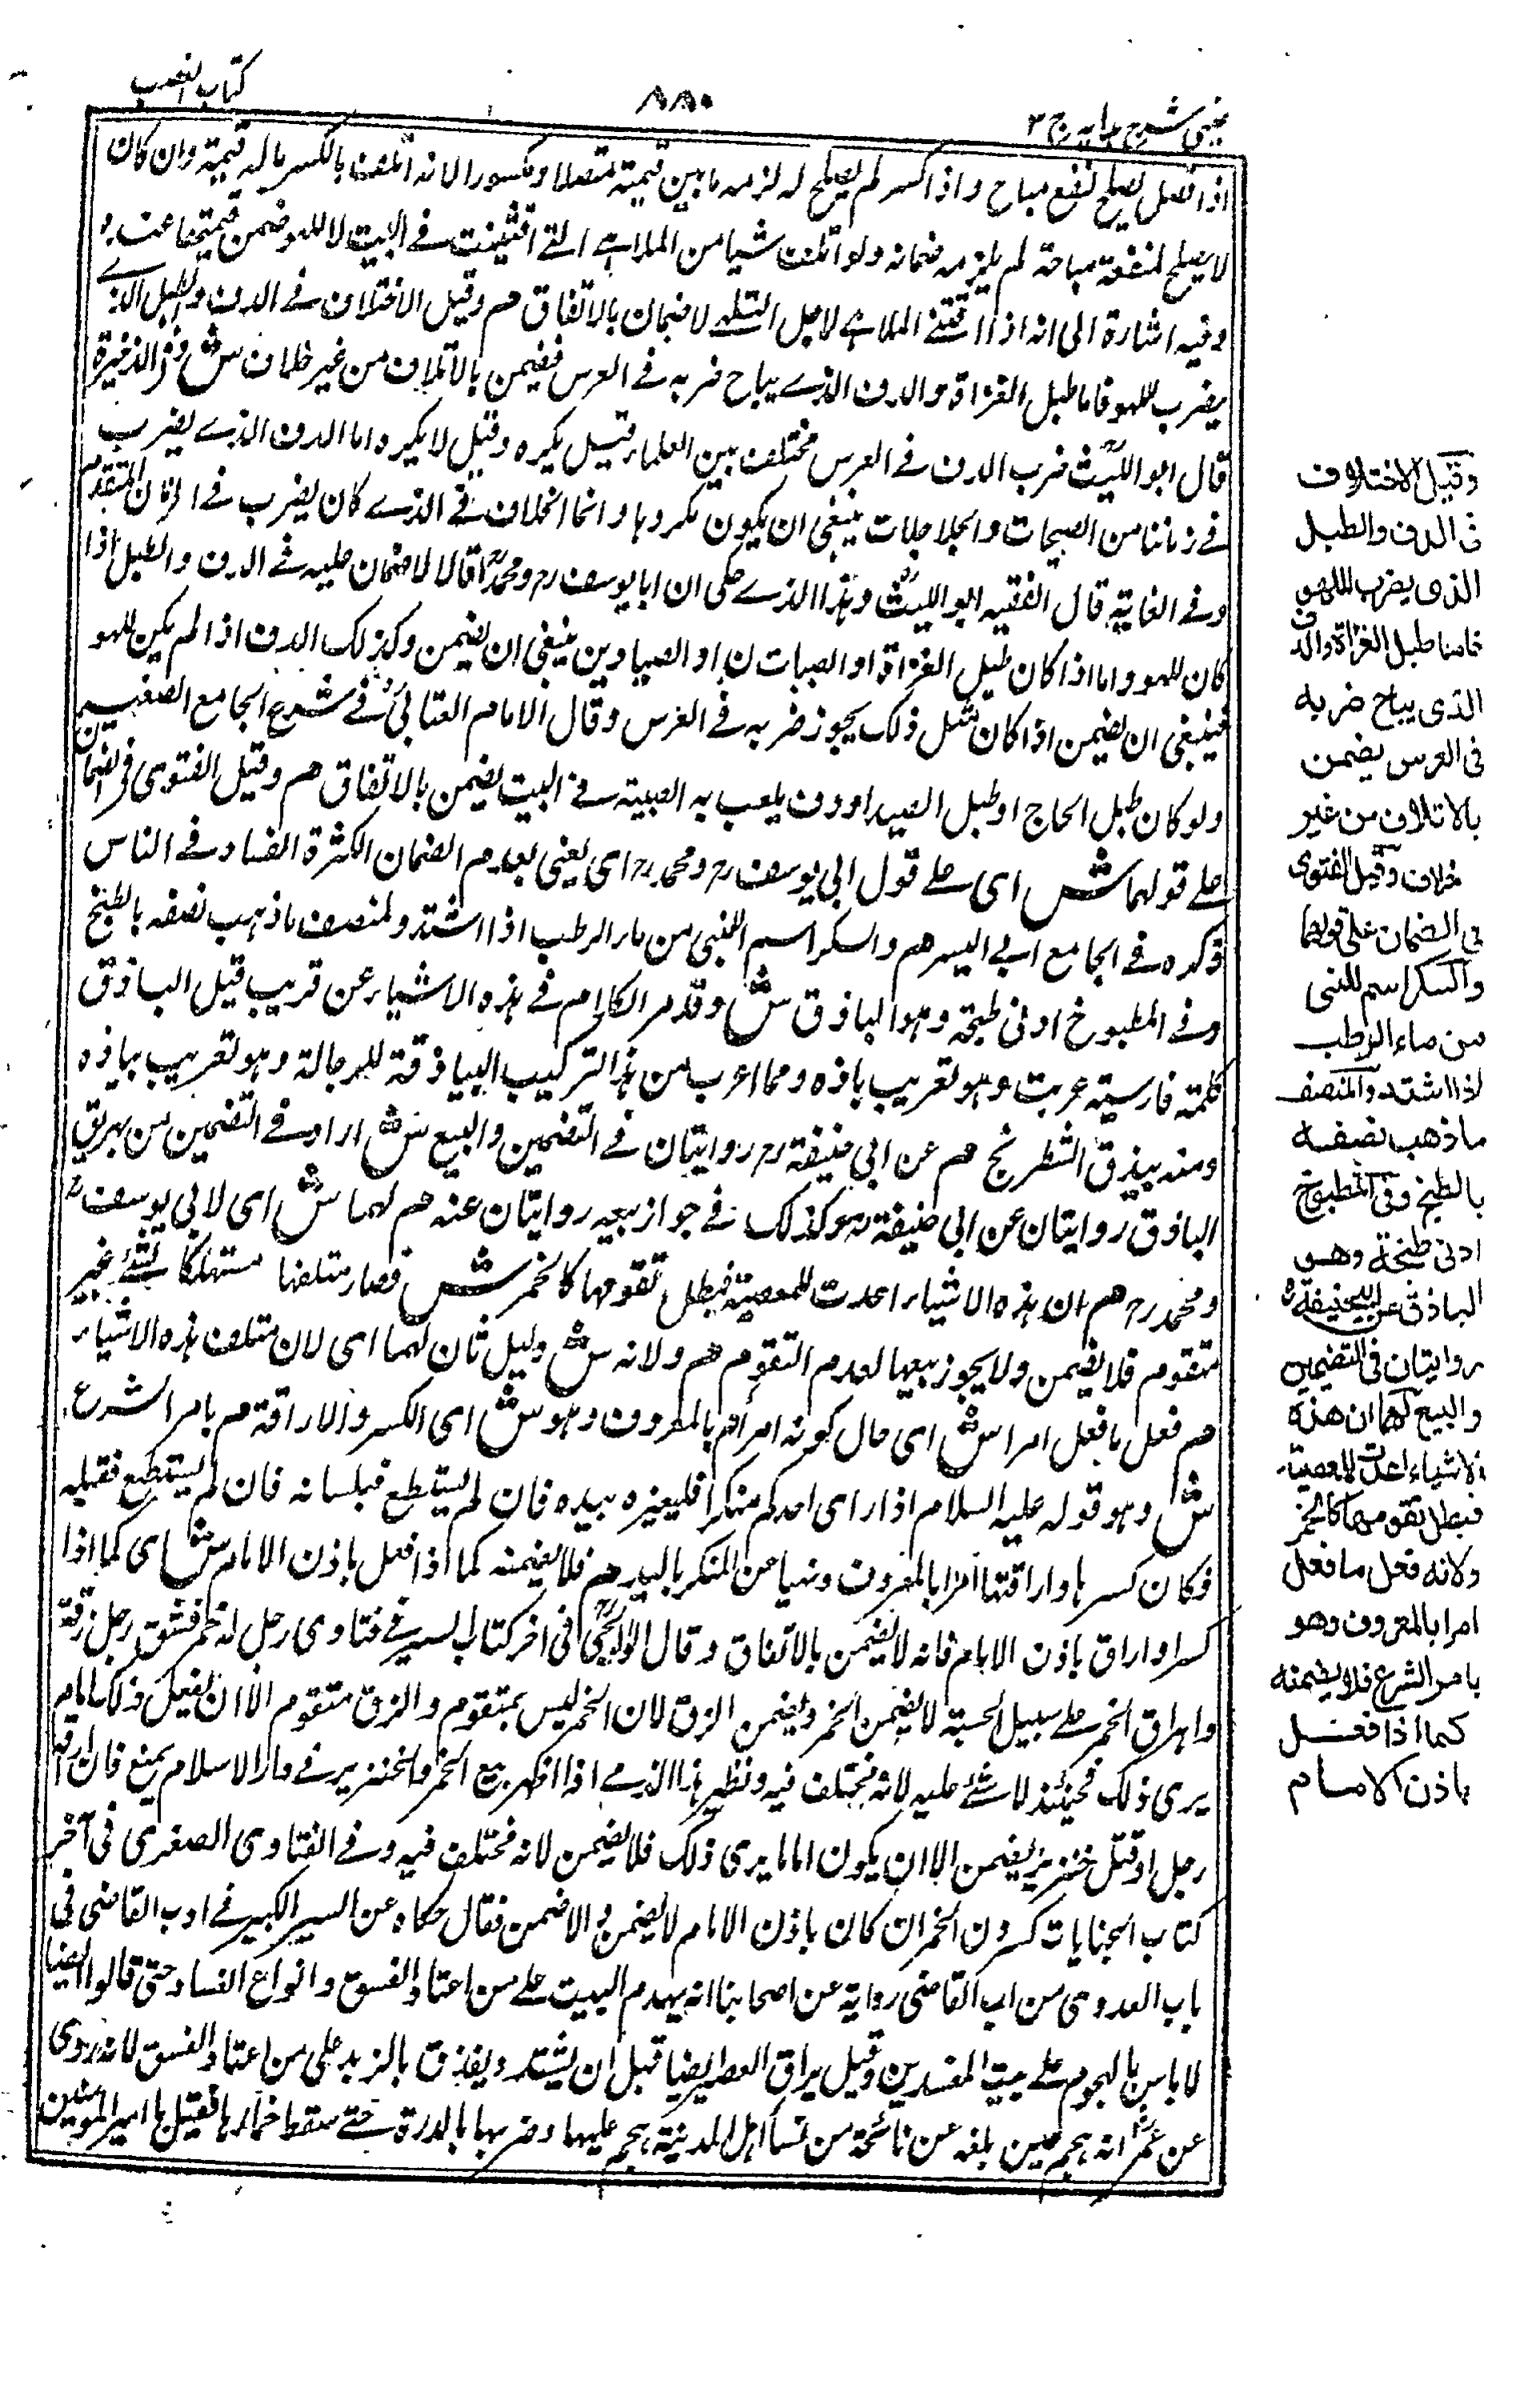 عینی شرح هدایه ج ۳
۸۸۰
کتاب الغصب
اذا فصل یصلح لنفع مباح واذا کسر لم یصلح له لزمه ما بین قیمته متصلا ومکسورا لانه اتلف بالکسر ماله قیمة وان کان
لا یصلح لمنفعة مباحة لم یلزمه ضمانه ولو اتلف شیا من الملاهی التی اقتنیت فی البیت لا للهو ضمن قیمتها عنده
وفیه اشارة الی انه اذا اقتنی الملاهی لاجل التلهی لا ضمان بالاتفاق هم وقیل الاختلاف فی الدف والطبل الذی
یضرب للهو فاما طبل الغزاة والدف الذی یباح ضربه فی العرس فیضمن بالاتلاف من غیر خلاف ش وفی الذخیرة
قال ابو اللیث ضرب الدف فی العرس مختلف بین العلماء قیل یکره وقیل لا یکره واما الدف الذی یضرب
فی زماننا من الصیحات والجلاجلات ینبغی ان یکون مکروها وانما الخلاف فی الذی کان یضرب فی الزمان المتقدم
وفی الغایة قال الفقیه ابو اللیث وهذا الذی حکی ان ابا یوسف رح ومحمدا قالا لا ضمان علیه فی الدف والطبل اذا
کان للهو واما اذا کان طبل الغزاة او الصبات ن او الصیادین ینبغی ان یضمن وکذلک الدف اذا لم یکن للهو
فینبغی ان یضمن اذا کان مثل ذلک یجوز ضربه فی العرس وقال الامام العتابی فی شرح الجامع الصغیر
ولو کان طبل الحاج او طبل الصید او دف یلعب به الصبیة فی البیت یضمن بالاتفاق هم وقیل الفتوی فی الضمان
علی قولهما ش ای علی قول ابی یوسف رح ومحمد رح ای یعنی بعدم الضمان لکثرة الفساد فی الناس
ذکره فی الجامع ابی الیسر هم والسکر اسم للنیی من ماء الرطب اذا اشتد والمنصف ما ذهب نصفه بالطبخ
وفی المطبوخ ادنی طبخة وهو الباذق ش وقد مر الکلام فی هذه الاشیاء عن قریب قیل الباذق
کلمة فارسیة عربت وهو تعریب باذه ومما اعرب من هذا الترکیب البیاذقة للرجالة وهو تعریب بیاذه
ومنه بیذق الشطرنج هم عن ابی حنیفة رح روایتان فی التضمین والبیع ش اراد فی التضمین من یهریق
الباذق روایتان عن ابی حنیفة وکذلک فی جواز بیعه روایتان عنه هم لهما ش ای لابی یوسف رح
ومحمد رح هم ان هذه الاشیاء اعدت للمعصیة فبطل تقومها کالخمر ش فصار متلفها مستهلکا لشئ غیر
متقوم فلا یضمن ولا یجوز بیعها لعدم التقوم هم ولانه ش دلیل ثان لهما ای لان متلف هذه الاشیاء
هم فعل ما فعل امرا ش ای حال کونه امرا هم بالمعروف وهو ش ای الکسر والاراقة هم بامر الشرع
ش وهو قوله علیه السلام اذا رای احدکم منکرا فلیغیره بیده فان لم یستطع فبلسانه فان لم یستطع فقبله
فکان کسرها واراقتها امرا بالمعروف ونهیا عن المنکر بالید هم فلا یضمنه کما اذا فعل باذن الامام ش ای کما اذا
کسر او اراق باذن الامام فانه لا یضمن بالاتفاق وقال الولوالجی فی اخر کتاب السیر فی فتاوی رجل له خمر فشق رجل زقه
واهراق الخمر علی سبیل الحسبة لا یضمن الخمر ویضمن الزق لان الخمر لیس بمتقوم والزق متقوم الا ان یفعل ذلک امام
یری ذلک فحینئذ لا شئ علیه لانه مختلف فیه ونظیر هذا الذمی اذا اظهر بیع الخمر والخنزیر فی دار الاسلام یمنع فان اراقه
رجل او قتل خنزیر یضمن الا ان یکون اماما یری ذلک فلا یضمن لانه مختلف فیه وفی الفتاوی الصغری فی آخر
کتاب الجنایات کسر دن الخمر ان کان باذن الامام لا یضمن والا ضمن فقال حکاه عن السیر الکبیر فی ادب القاضی فی
باب العدوی من اب القاضی روایة عن اصحابنا انه یهدم البیت علی من اعتاد الفسق وانواع الفساد حتی قالوا ایضا
لا باس بالهجوم علی بیت المفسدین وقیل یراق العصیر ایضا قبل ان یشتد ویقذق بالزبد علی من اعتاد الفسق لانه روی
عن عمر انه هجم حین بلغه عن نائحة من نساء اهل المدینة هجم علیها وضربها بالدرة حتی سقط خمارها فقیل یا امیر المومنین
وقیل الاختلاف
فی الدف والطبل
الذی یضرب للهو
فاما طبل الغزاة والدف
الذی یباح ضربه
فی العرس یضمن
بالاتلاف من غیر
خلاف وقیل الفتوی
فی الضمان علی قولهما
والسکر اسم للنی
من ماء الرطب
اذا اشتد والمنصف
ما ذهب نصفه
بالطبخ وفی المطبوخ
ادنی طبخة وهو
الباذق عن ابیحنیفة رح
روایتان فی التضمین
والبیع لهما ان هذه
الاشیاء اعدت للمعصیة
فبطل تقومها کالخمر
ولانه فعل ما فعل
امرا بالمعروف وهو
بامر الشرع فلا یضمنه
کما اذا فعل
باذن الامام